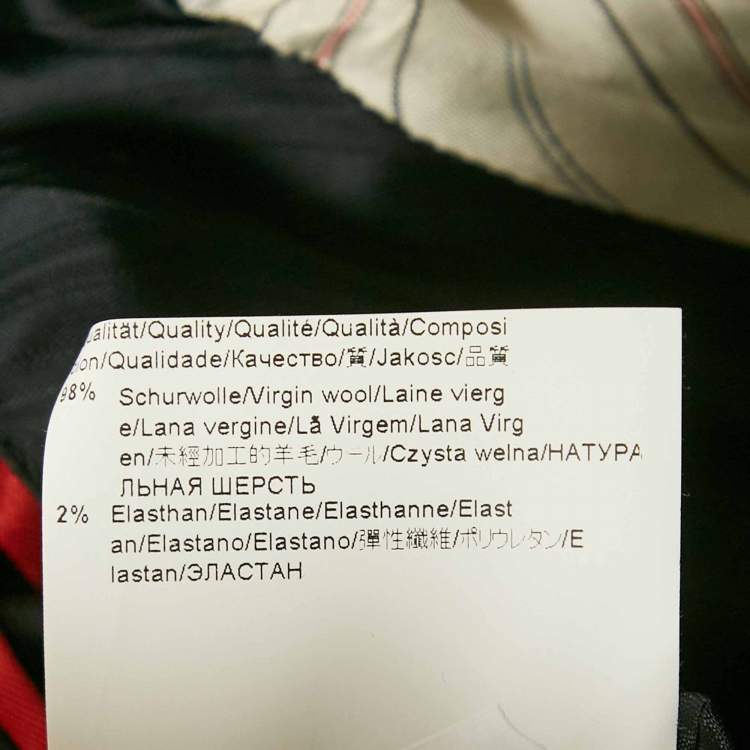 ualität/Quality/Qualité/Qualità/Composi
ion/Qualidade/Качество/質/Jakosc/品質
98% Schurwolle/Virgin wool/Laine vierg
e/Lana vergine/Lã Virgem/Lana Virg
en/未經加工的羊毛/ウール/Czysta welna/НАТУРА
ЛЬНАЯ ШЕРСТЬ
2% Elasthan/Elastane/Elasthanne/Elast
an/Elastano/Elastano/彈性纖維/ポリウレタン/E
lastan/ЭЛАСТАН